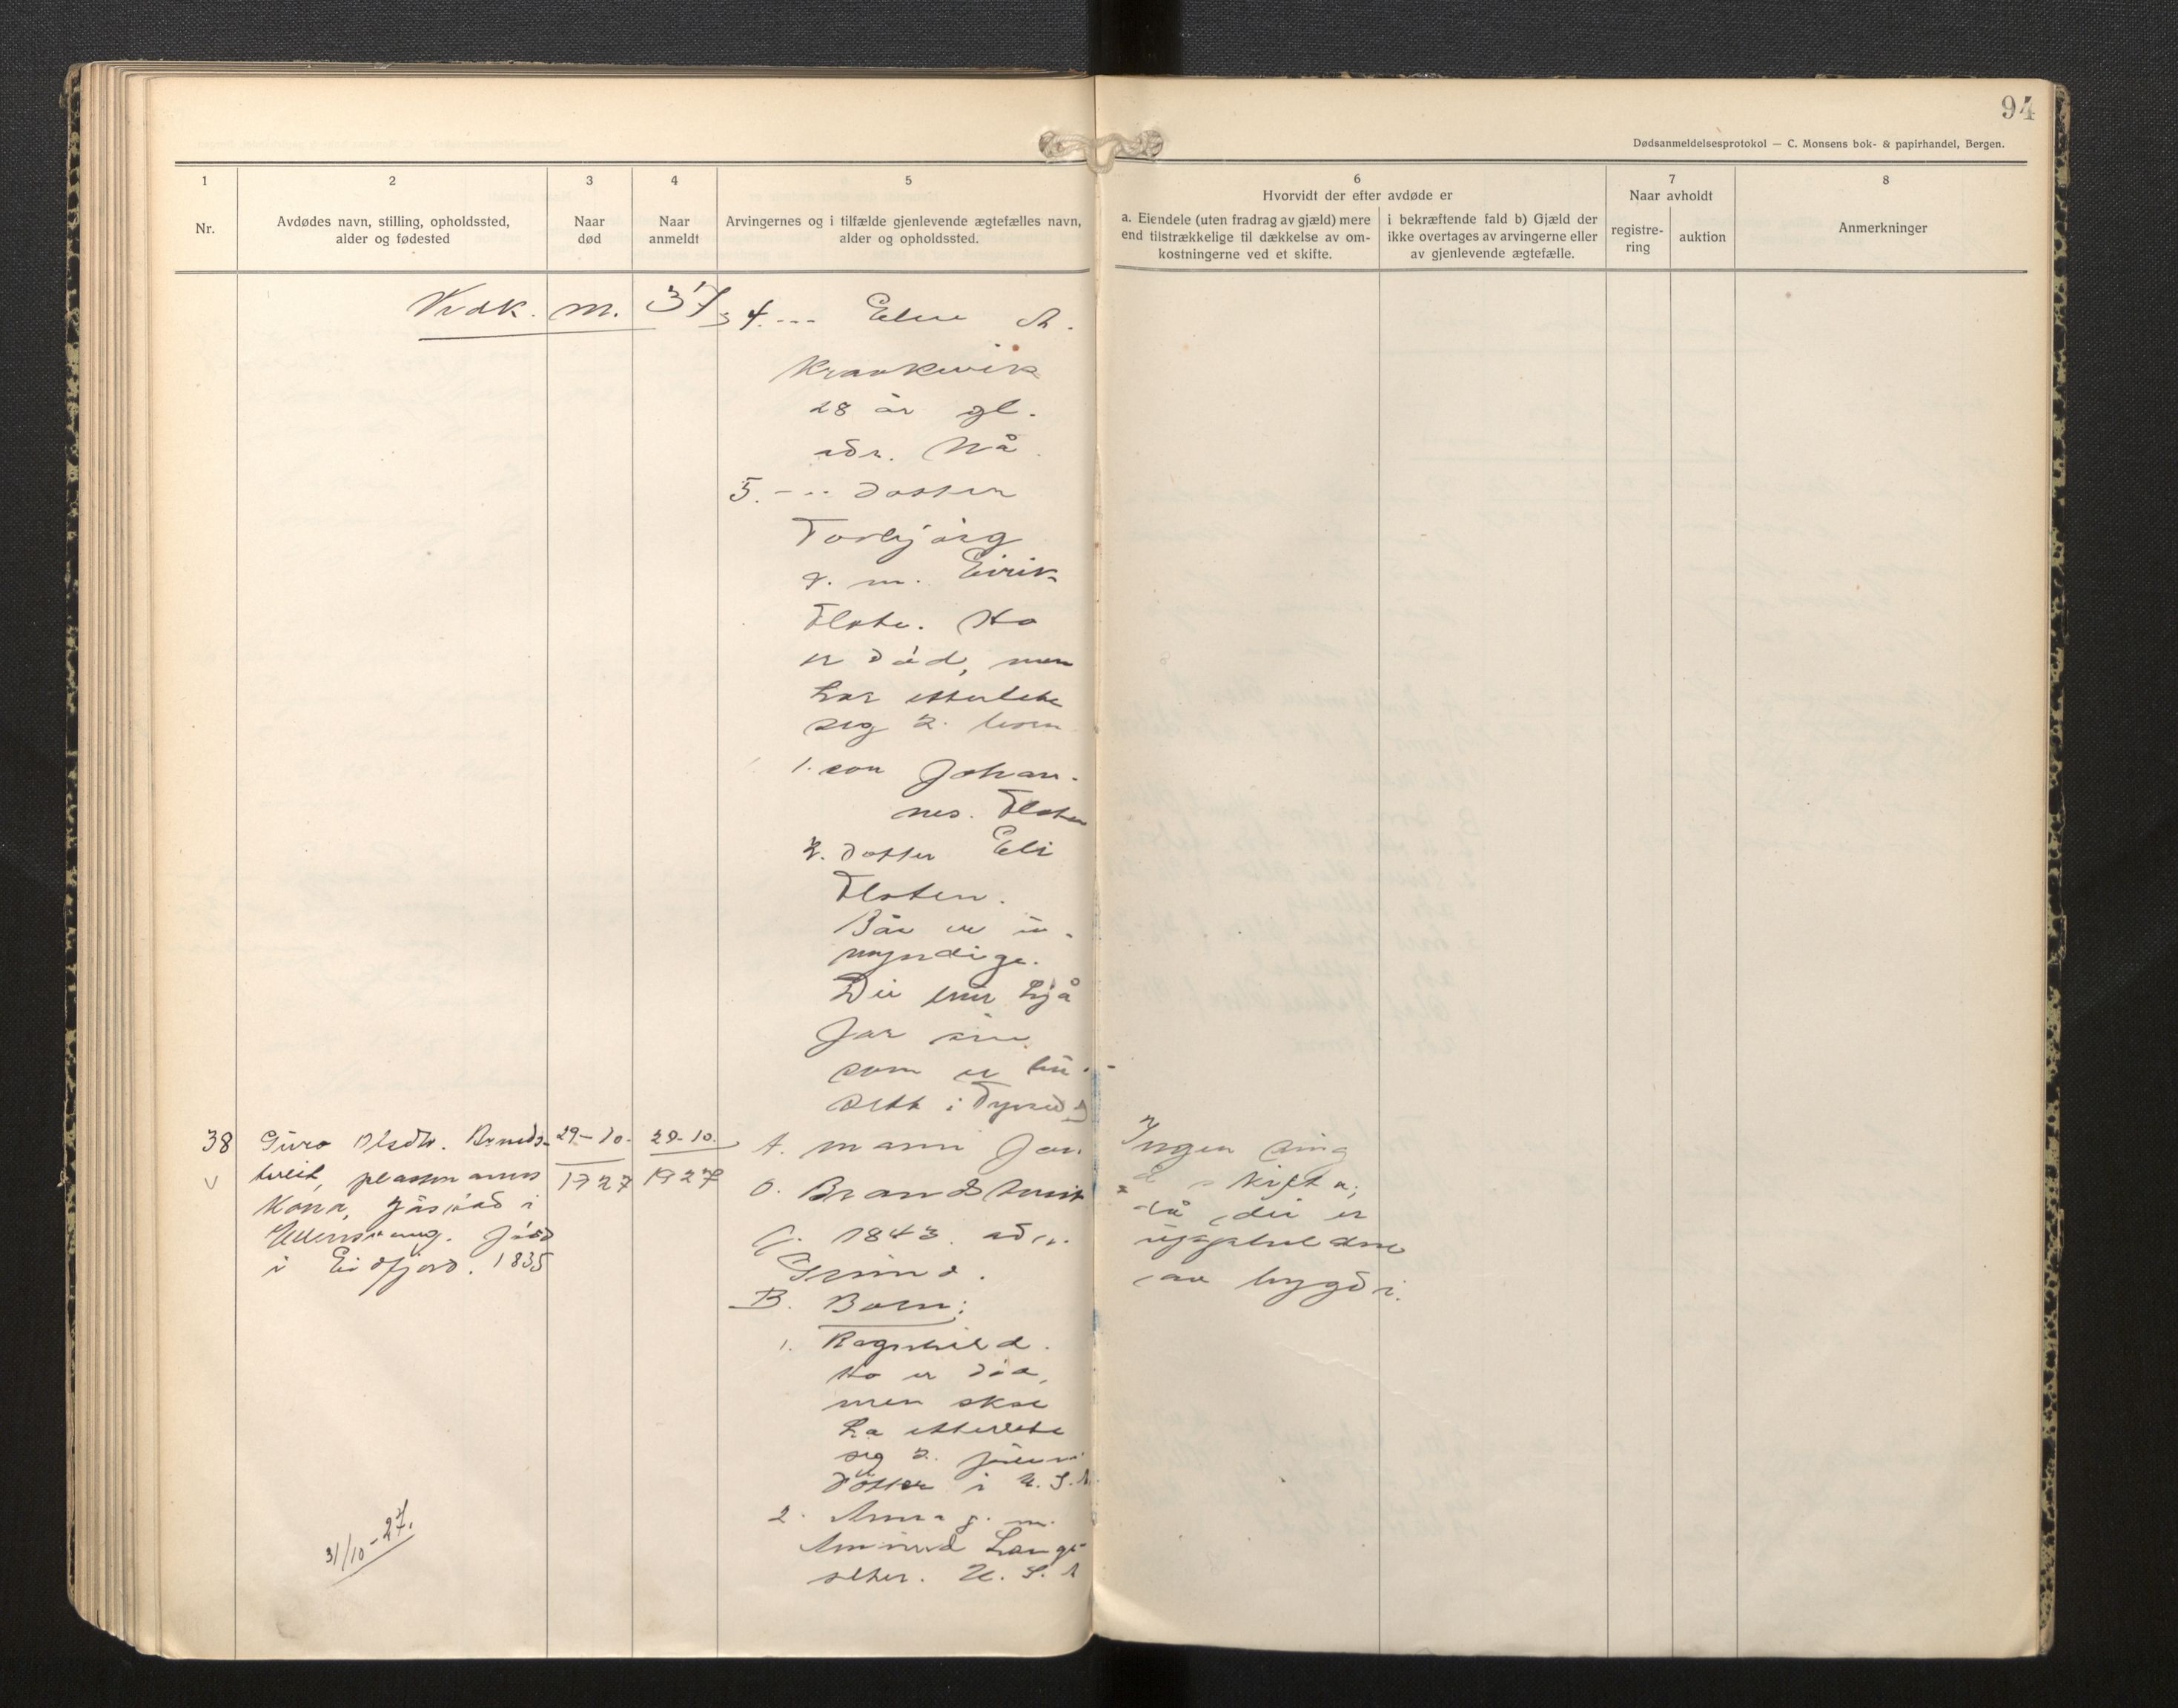 94
Dødsanmeldelsesprotokol — C. Monsens bok- & papirhandel, Bergen.
1
Nr.
2
Avdødes navn, stilling, opholdssted,
alder og fødested
3
Naar
død
4
Naar
anmeldt
5
Arvingernes og i tilfælde gjenlevende ægtefælles navn,
alder og opholdssted.
6
Hvorvidt der efter avdøde er
a. Eiendele (uten fradrag av gjæld) mere
end tilstrækkelige til dækkelse av om-
kostningerne ved et skifte.
i bekræftende fald b) Gjæld der
ikke overtages av arvingerne eller
av gjenlevende ægtefælle.
7
Naar avholdt
registre-
ring
auktion
8
Anmerkninger
Vedk. nr. 37
4. --- A.
28 år gl.
adr. Nå
5. --- Dotter
Torbjørg
g. m. Eirik
Tloten. Ho
er død, men
har etterlete
seg 2. born
1. son Johan-
nes. Tloten
2. Dotter Eli
Tloten.
Båe er u-
myndige.
Dei er hjå
far sin
som er bu-
sett i Tyssedal
38
Guro Olsdtr. Brands-
tveit, plassmanns
Kona, i
Ullensvang. Fødd
i Eidfjord. 1835
29-10
1927
29-10.
1927
A. mann Jon
O. Brandstveit
f. 1843. adr.
Grimo.
B. Born:
1. Ragnhild.
Ho er død,
men skal
ha etterlete
seg 2.
Døtter i U.S.A.
2. Anna g. m.
Amund Lang-
seter. U.S.A
Ingen ting
å skifta,
då dei er
av bygdi.
31/10-27.